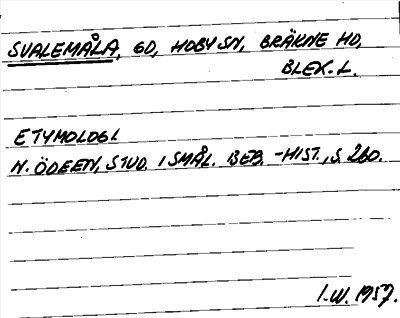 SVALEMÅLA, GD, HOBY SN, BRÄKNE HD,
BLEK. L.
ETYMOLOGI
N. ÖDEEN, STUD. I SMÅL. BEB. -HIST., S. 260.
I.W. 1957.